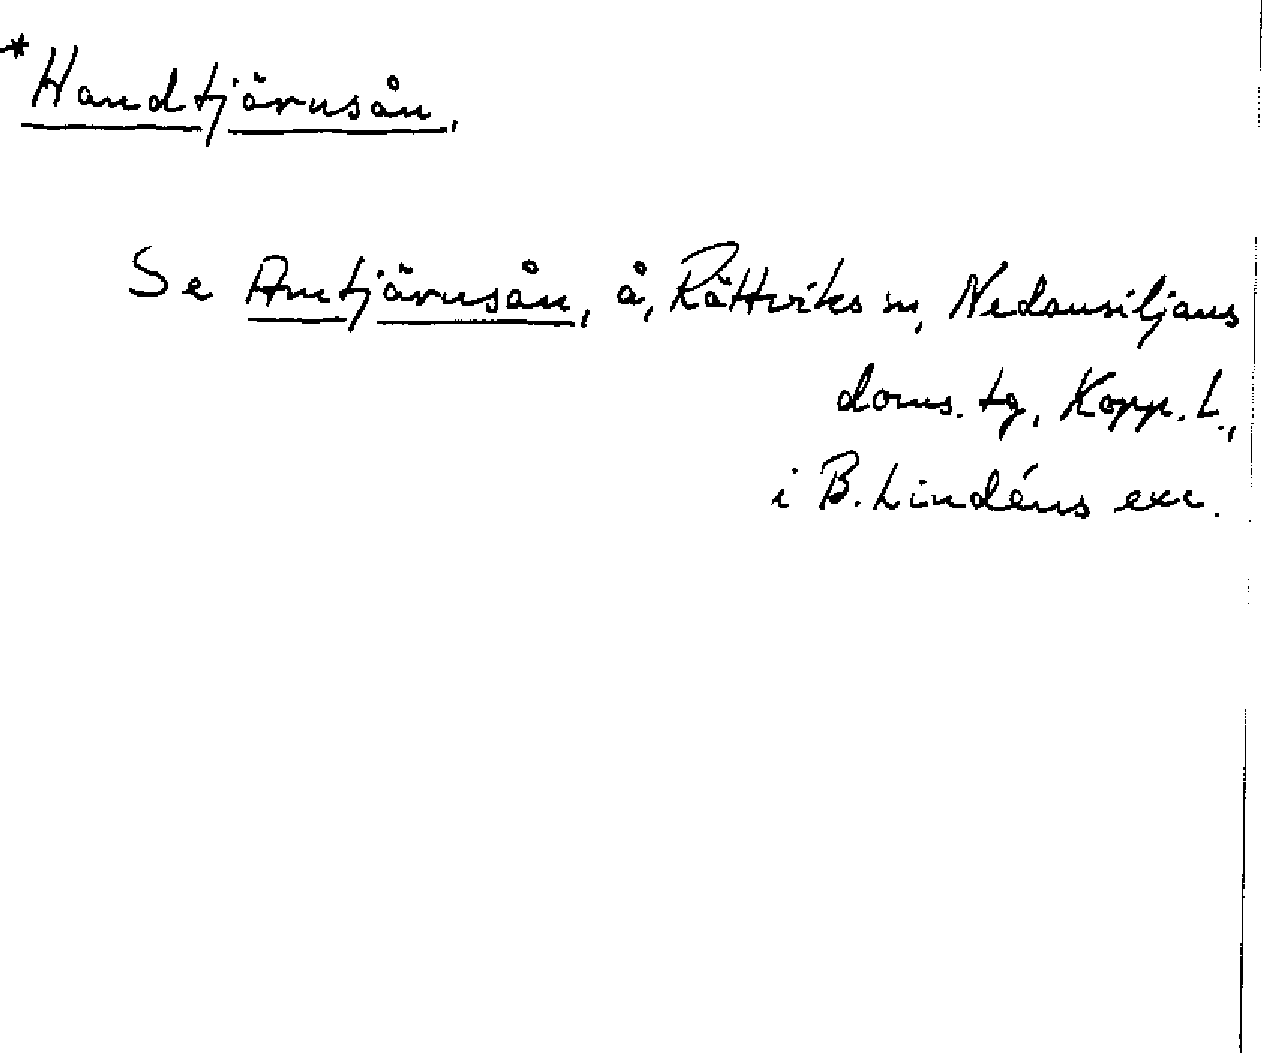 *Handtjärnsån,
Se Antjärnsån, å, Rättviks sn, Nedansiljans
doms. tg, Kopp. l.,
i B. Lindéns exc.